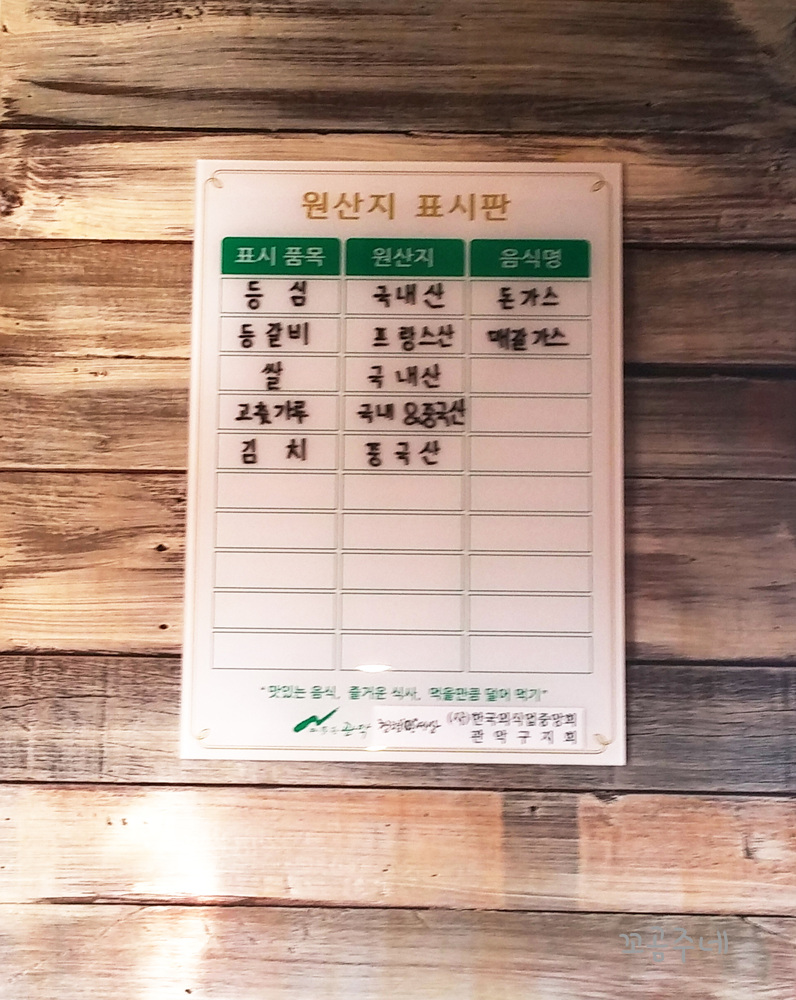 원산지 표시판
표시 품목 원산지 음식명
등심 국내산 돈가스
등갈비 프랑스산 매갈가스
쌀 국내산
고춧가루 국내&중국산
김치 중국산
"맛있는 음식, 즐거운 식사, 먹을만큼 덜어 먹기"
관악 (사)한국외식업중앙회
관악구지회
꼬공주네